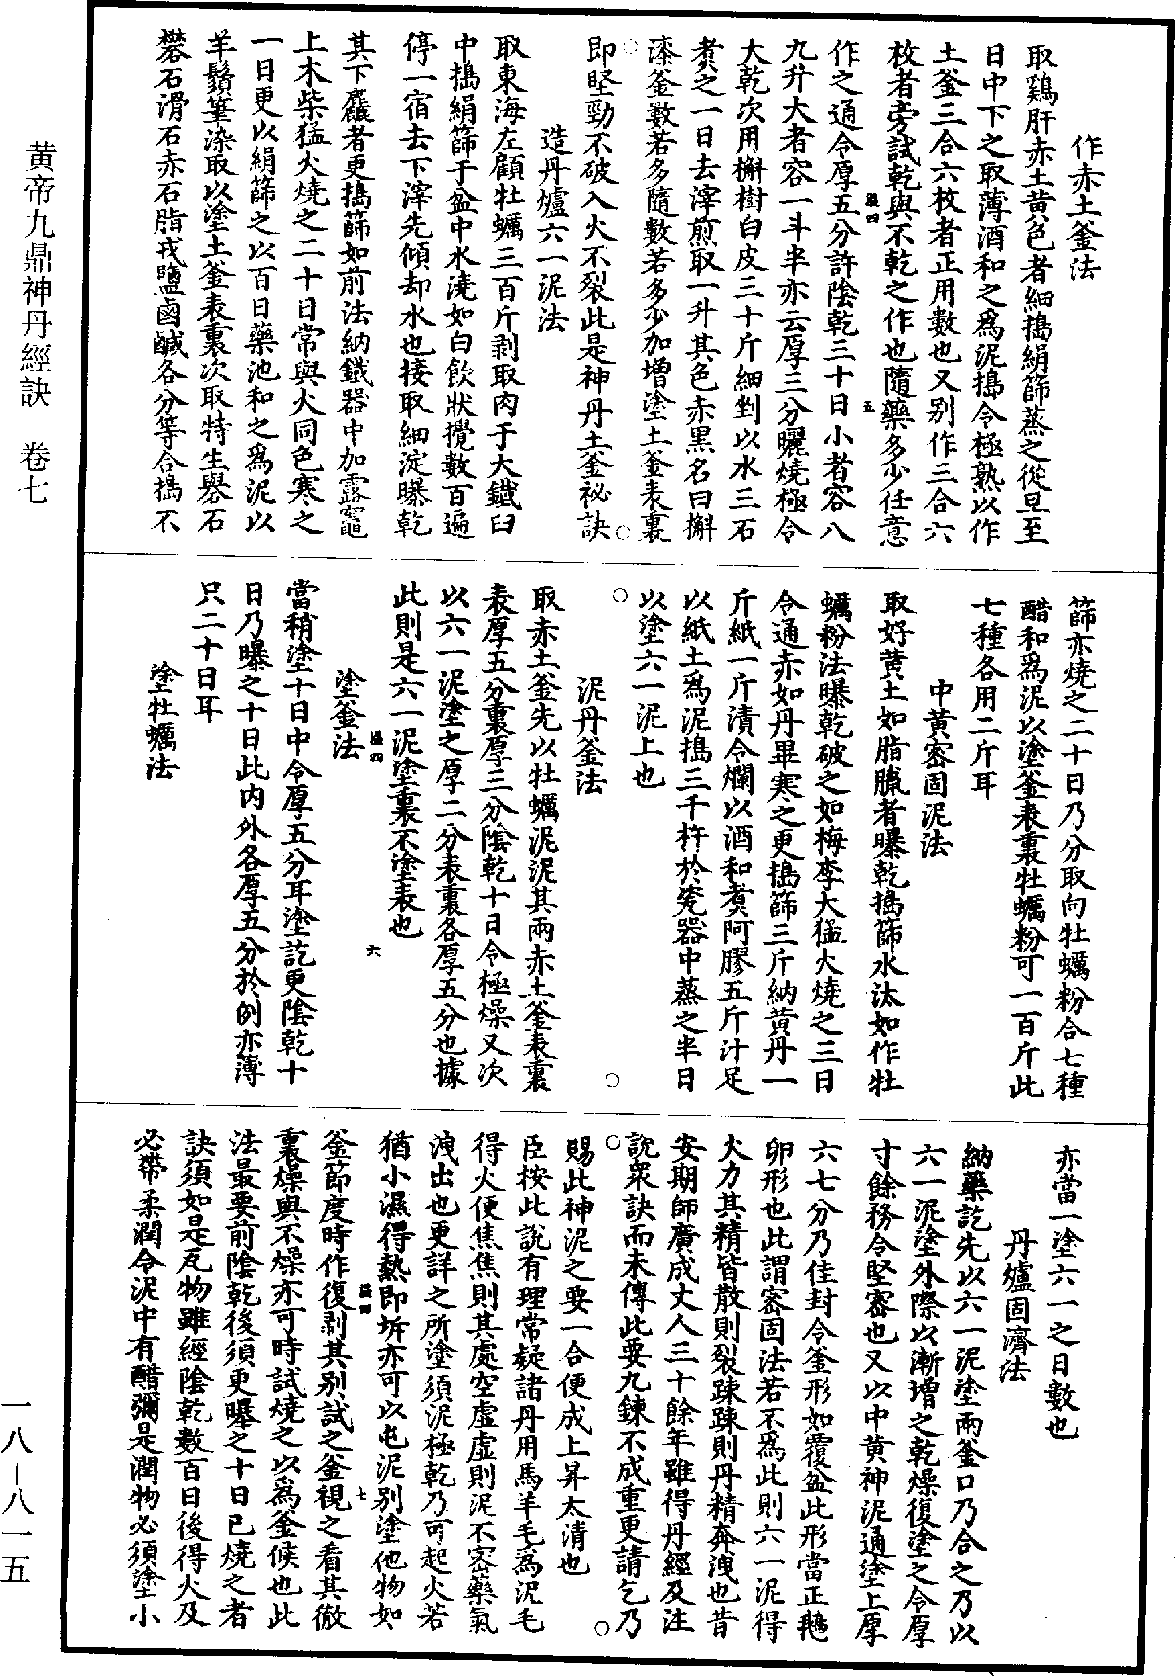 作赤土釜法
取鷄肝赤土黄色者細搗絹篩蒸之從旦至
日中下之取薄酒和之爲泥搗令極熟以作
土釜三合六枚者正用數也又别作三合六
枚者旁試乾與不乾之作也隨藥多少任意
作之通令厚五分許陰乾三十日小者容八
九升大者容一斗半亦云厚三分曬燒極令
大乾次用槲樹白皮三十斤細剉以水三石
煑之一日去滓煎取一升其色赤黑名曰槲
漆釜數若多隨數若多少加增塗土釜表裏
即堅勁不破入火不裂此是神丹土釜祕訣
造丹爐六一泥法
取東海左顧牡蠣三百斤剥取肉于大鐵臼
中搗絹篩于盆中水澆如白飲狀攪數百遍
停一宿去下滓先傾却水也接取細淀曝乾
其下麤者更搗篩如前法納鐵器中加露竈
上木柴猛火燒之二十日常與火同色寒之
一日更以絹篩之以百日藥池和之爲泥以
羊鬚筆染取以塗土釜表裏次取特生礜石
礬石滑石赤石脂戎鹽鹵鹹各分等合搗不
篩亦燒之二十日乃分取向牡蠣粉合七種
醋和爲泥以塗釜表裏牡蠣粉可一百斤此
七種各用二斤耳
中黄密固泥法
取好黄土如脂膩者曝乾搗篩水汰如作牡
蠣粉法曝乾破之如梅李大猛火燒之三日
令通赤如丹畢寒之更搗篩三斤納黄丹一
斤紙一斤漬令爛以酒和煑阿膠五斤汁足
以紙土爲泥搗三千杵於瓷器中蒸之半日
以塗六一泥上也
泥丹釜法
取赤土釜先以牡蠣泥泥其兩赤土釜表裏
表厚五分裏厚三分陰乾十日令極燥又次
以六一泥塗之厚二分表裏各厚五分也據
此則是六一泥塗裏不塗表也
塗釜法
當稍塗十日中令厚五分耳塗訖更陰乾十
日乃曝之十日此内外各厚五分於例亦薄
只二十日耳
塗牡蠣法
亦當一塗六一之日數也
丹爐固濟法
納藥訖先以六一泥塗兩釜口乃合之乃以
六一泥塗外際以漸增之乾燥復塗之令厚
寸餘務令堅密也又以中黄神泥通塗上厚
六七分乃佳封令釜形如覆盆此形當正鵝
卵形也此謂密固法若不爲此則六一泥得
火力其精皆散則裂踈踈則丹精奔洩也昔
安期師廣成丈人三十餘年雖得丹經及注
說衆訣而未傳此要九鍊不成重更請乞乃
賜此神泥之要一合便成上昇太清也
臣按此說有理常疑諸丹用馬羊毛爲泥毛
得火便焦焦則其處空虚虚則泥不密藥氣
洩出也更詳之所塗須泥極乾乃可起火若
猶小濕得熱即坼亦可以屯泥别塗他物如
釜節度時作復剥其别試之釜視之看其傲
裏燥與不燥亦可時試燒之以爲釜候也此
法最要前陰乾後須更曝之十日已燒之者
訣須如是瓦物雖經陰乾數百日後得火及
必帶柔潤令泥中有醋彌是潤物必須塗小
黄帝九鼎神丹經訣　卷七
一八—八一五